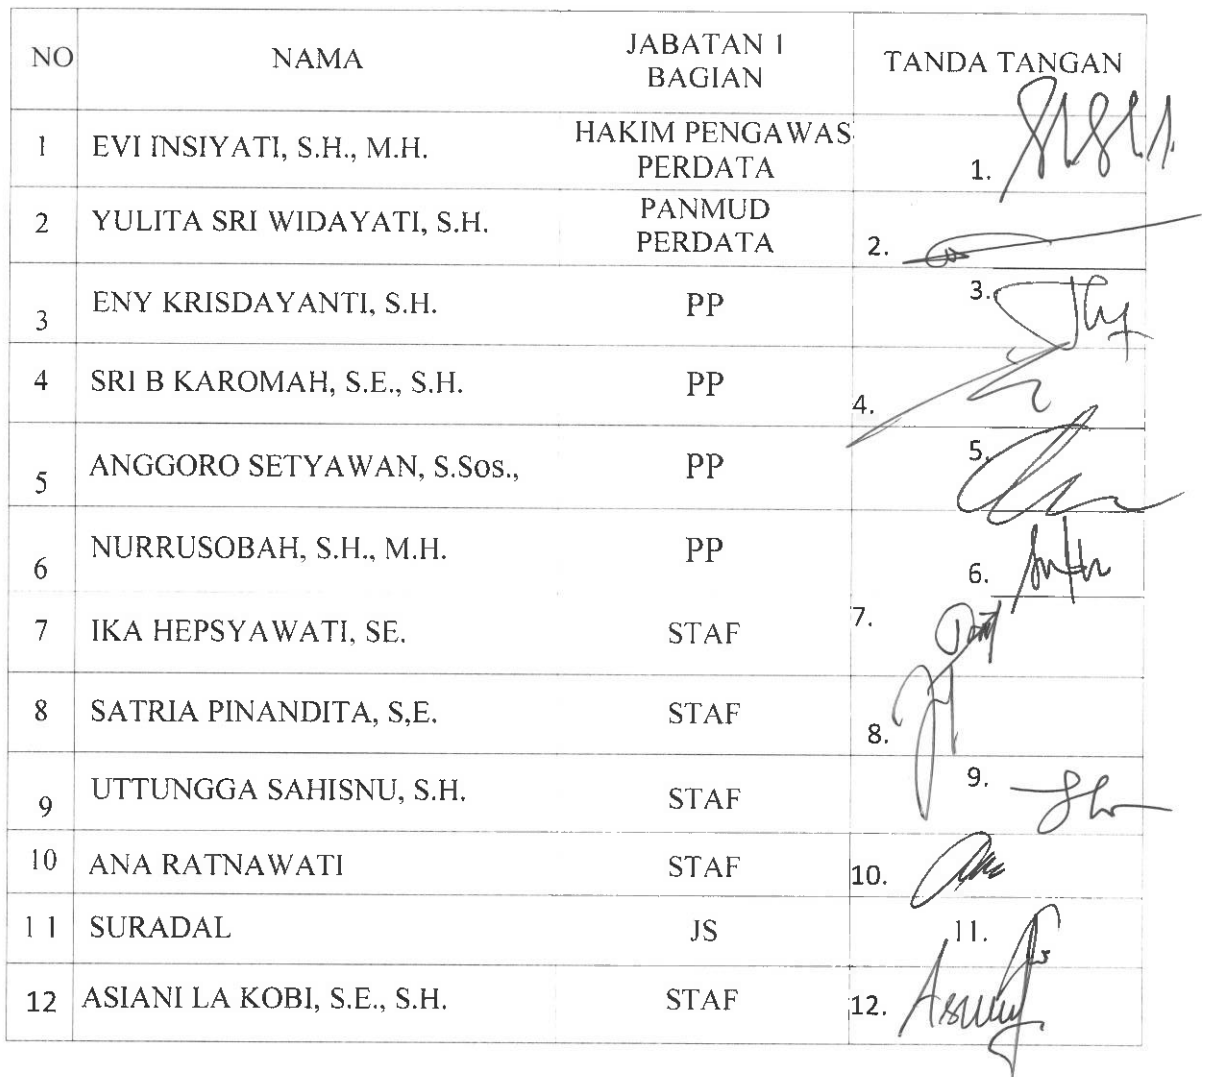 NO NAMA JABATAN 1 BAGIAN TANDA TANGAN
1 EVI INSIYATI, S.H., M.H. HAKIM PENGAWAS PERDATA 1.
2 YULITA SRI WIDAYATI, S.H. PANMUD PERDATA 2.
3 ENY KRISDAYANTI, S.H. PP 3.
4 SRI B KAROMAH, S.E., S.H. PP 4.
5 ANGGORO SETYAWAN, S.Sos., PP 5.
6 NURRUSOBAH, S.H., M.H. PP 6.
7 IKA HEPSYAWATI, SE. STAF 7.
8 SATRIA PINANDITA, S,E. STAF 8.
9 UTTUNGGA SAHISNU, S.H. STAF 9.
10 ANA RATNAWATI STAF 10.
11 SURADAL JS 11.
12 ASIANI LA KOBI, S.E., S.H. STAF 12.